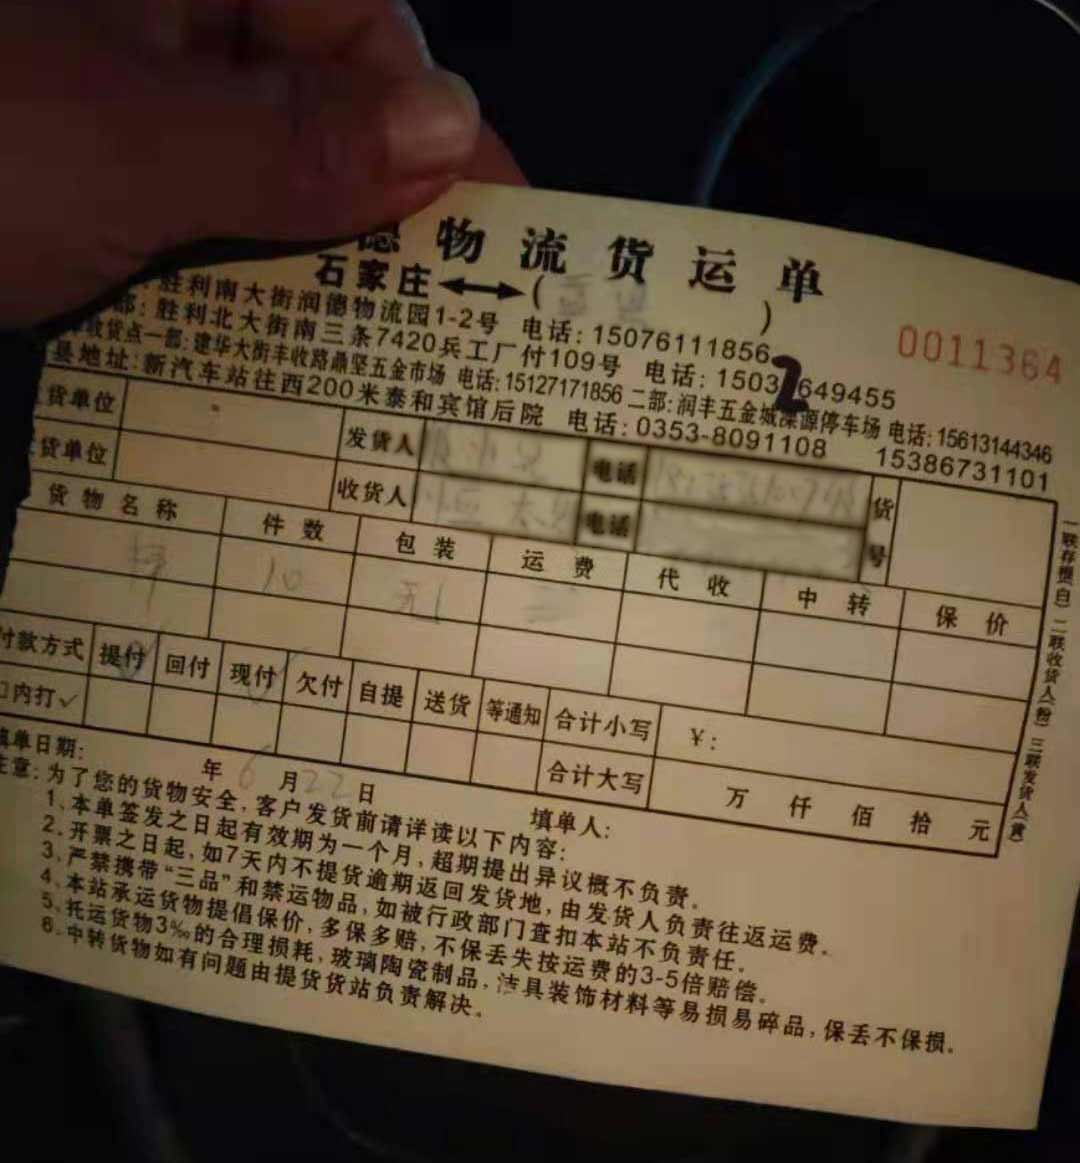 德物流货运单
石家庄↔( )
0011364
:胜利南大街润德物流园1-2号 电话:15076111856
部:胜利北大街南三条7420兵工厂付109号 电话:15032649455
收货点一部:建华大街丰收路鼎坚五金市场 电话:15127171856 二部:润丰五金城深源停车场 电话:15613144346
县地址:新汽车站往西200米泰和宾馆后院 电话:0353-8091108 15386731101
货单位 发货人 电话 货号
货单位 收货人 电话
货物名称 件数 包装 运费 代收 中转 保价
10 无
付款方式 提付 回付 现付 欠付 自提 送货 等通知 合计小写 ¥:
口内打✓ 合计大写 万 仟 佰 拾 元
填单日期: 年6月22日 填单人:
注意:为了您的货物安全,客户发货前请详读以下内容:
1、本单签发之日起有效期为一个月,超期提出异议概不负责。
2、开票之日起,如7天内不提货逾期返回发货地,由发货人负责往返运费。
3、严禁携带“三品”和禁运物品,如被行政部门查扣本站不负责任。
4、本站承运货物提倡保价,多保多赔,不保丢失按运费的3-5倍赔偿。
5、托运货物3‰的合理损耗,玻璃陶瓷制品,洁具装饰材料等易损易碎品,保丢不保损。
6、中转货物如有问题由提货货站负责解决。
一联存根(白) 二联收货人(粉) 三联发货人(黄)